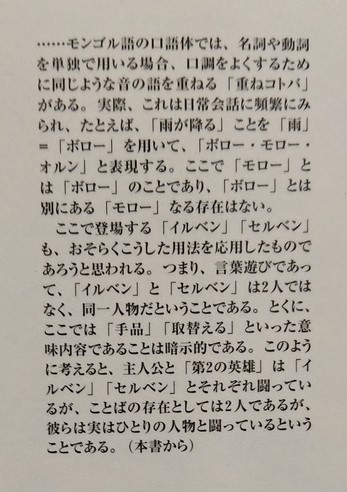 ……モンゴル語の口語体では、名詞や動詞
を単独で用いる場合、口調をよくするため
に同じような音の語を重ねる「重ねコトバ」
がある。実際、これは日常会話に頻繁にみ
られ、たとえば、「雨が降る」ことを「雨」
=「ボロー」を用いて、「ボロー・モロー・
オルン」と表現する。ここで「モロー」と
は「ボロー」のことであり、「ボロー」とは
別にある「モロー」なる存在はない。
ここで登場する「イルベン」「セルベン」
も、おそらくこうした用法を応用したもので
あろうと思われる。つまり、言葉遊びであっ
て、「イルベン」と「セルベン」は2人では
なく、同一人物だということである。とくに、
ここでは「手品」「取替える」といった意
味内容であることは暗示的である。このよう
に考えると、主人公と「第2の英雄」は「イ
ルベン」「セルベン」とそれぞれ闘ってい
るが、ことばの存在としては2人であるが、
彼らは実はひとりの人物と闘っているという
ことである。(本書から)